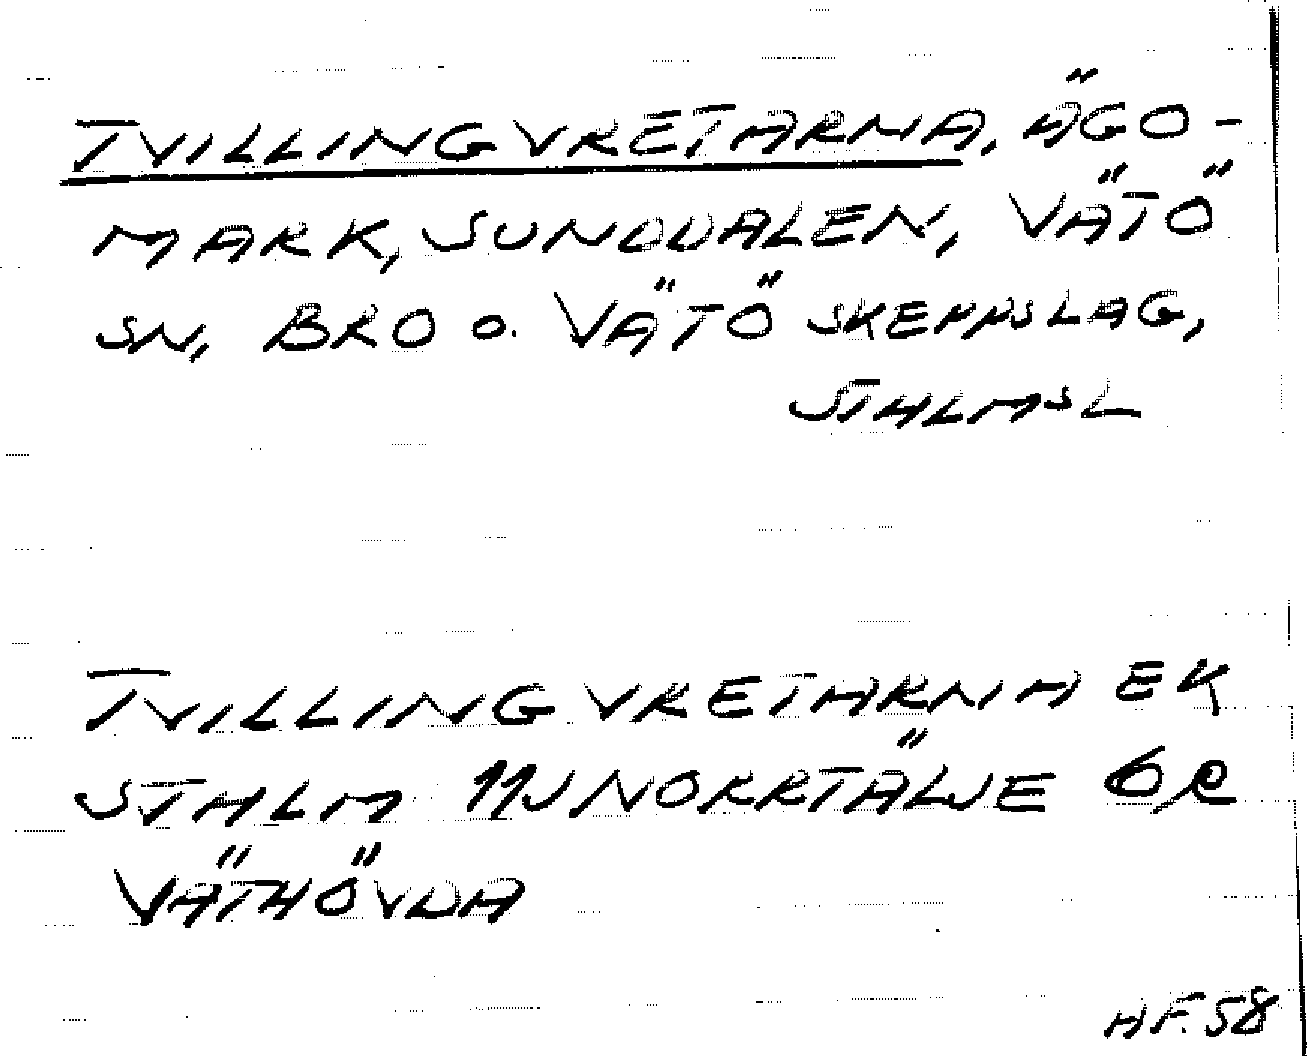 TVILLINGVRETARNA, ÄGO-
MARK, SUNDDALEN, VÄTÖ
SN, BRO O. VÄTÖ SKEPPSLAG,
STHLMSL
TVILLINGVRETARNA EK
STHLM 11J NORRTÄLJE
VÄTHÖVDA
AF. 58